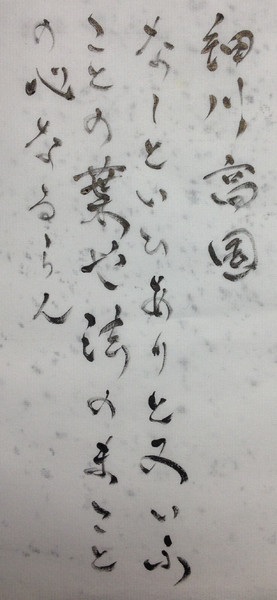 細川高国
なしといひありと又いふ
ことの葉や法のまこと
の心なるらん